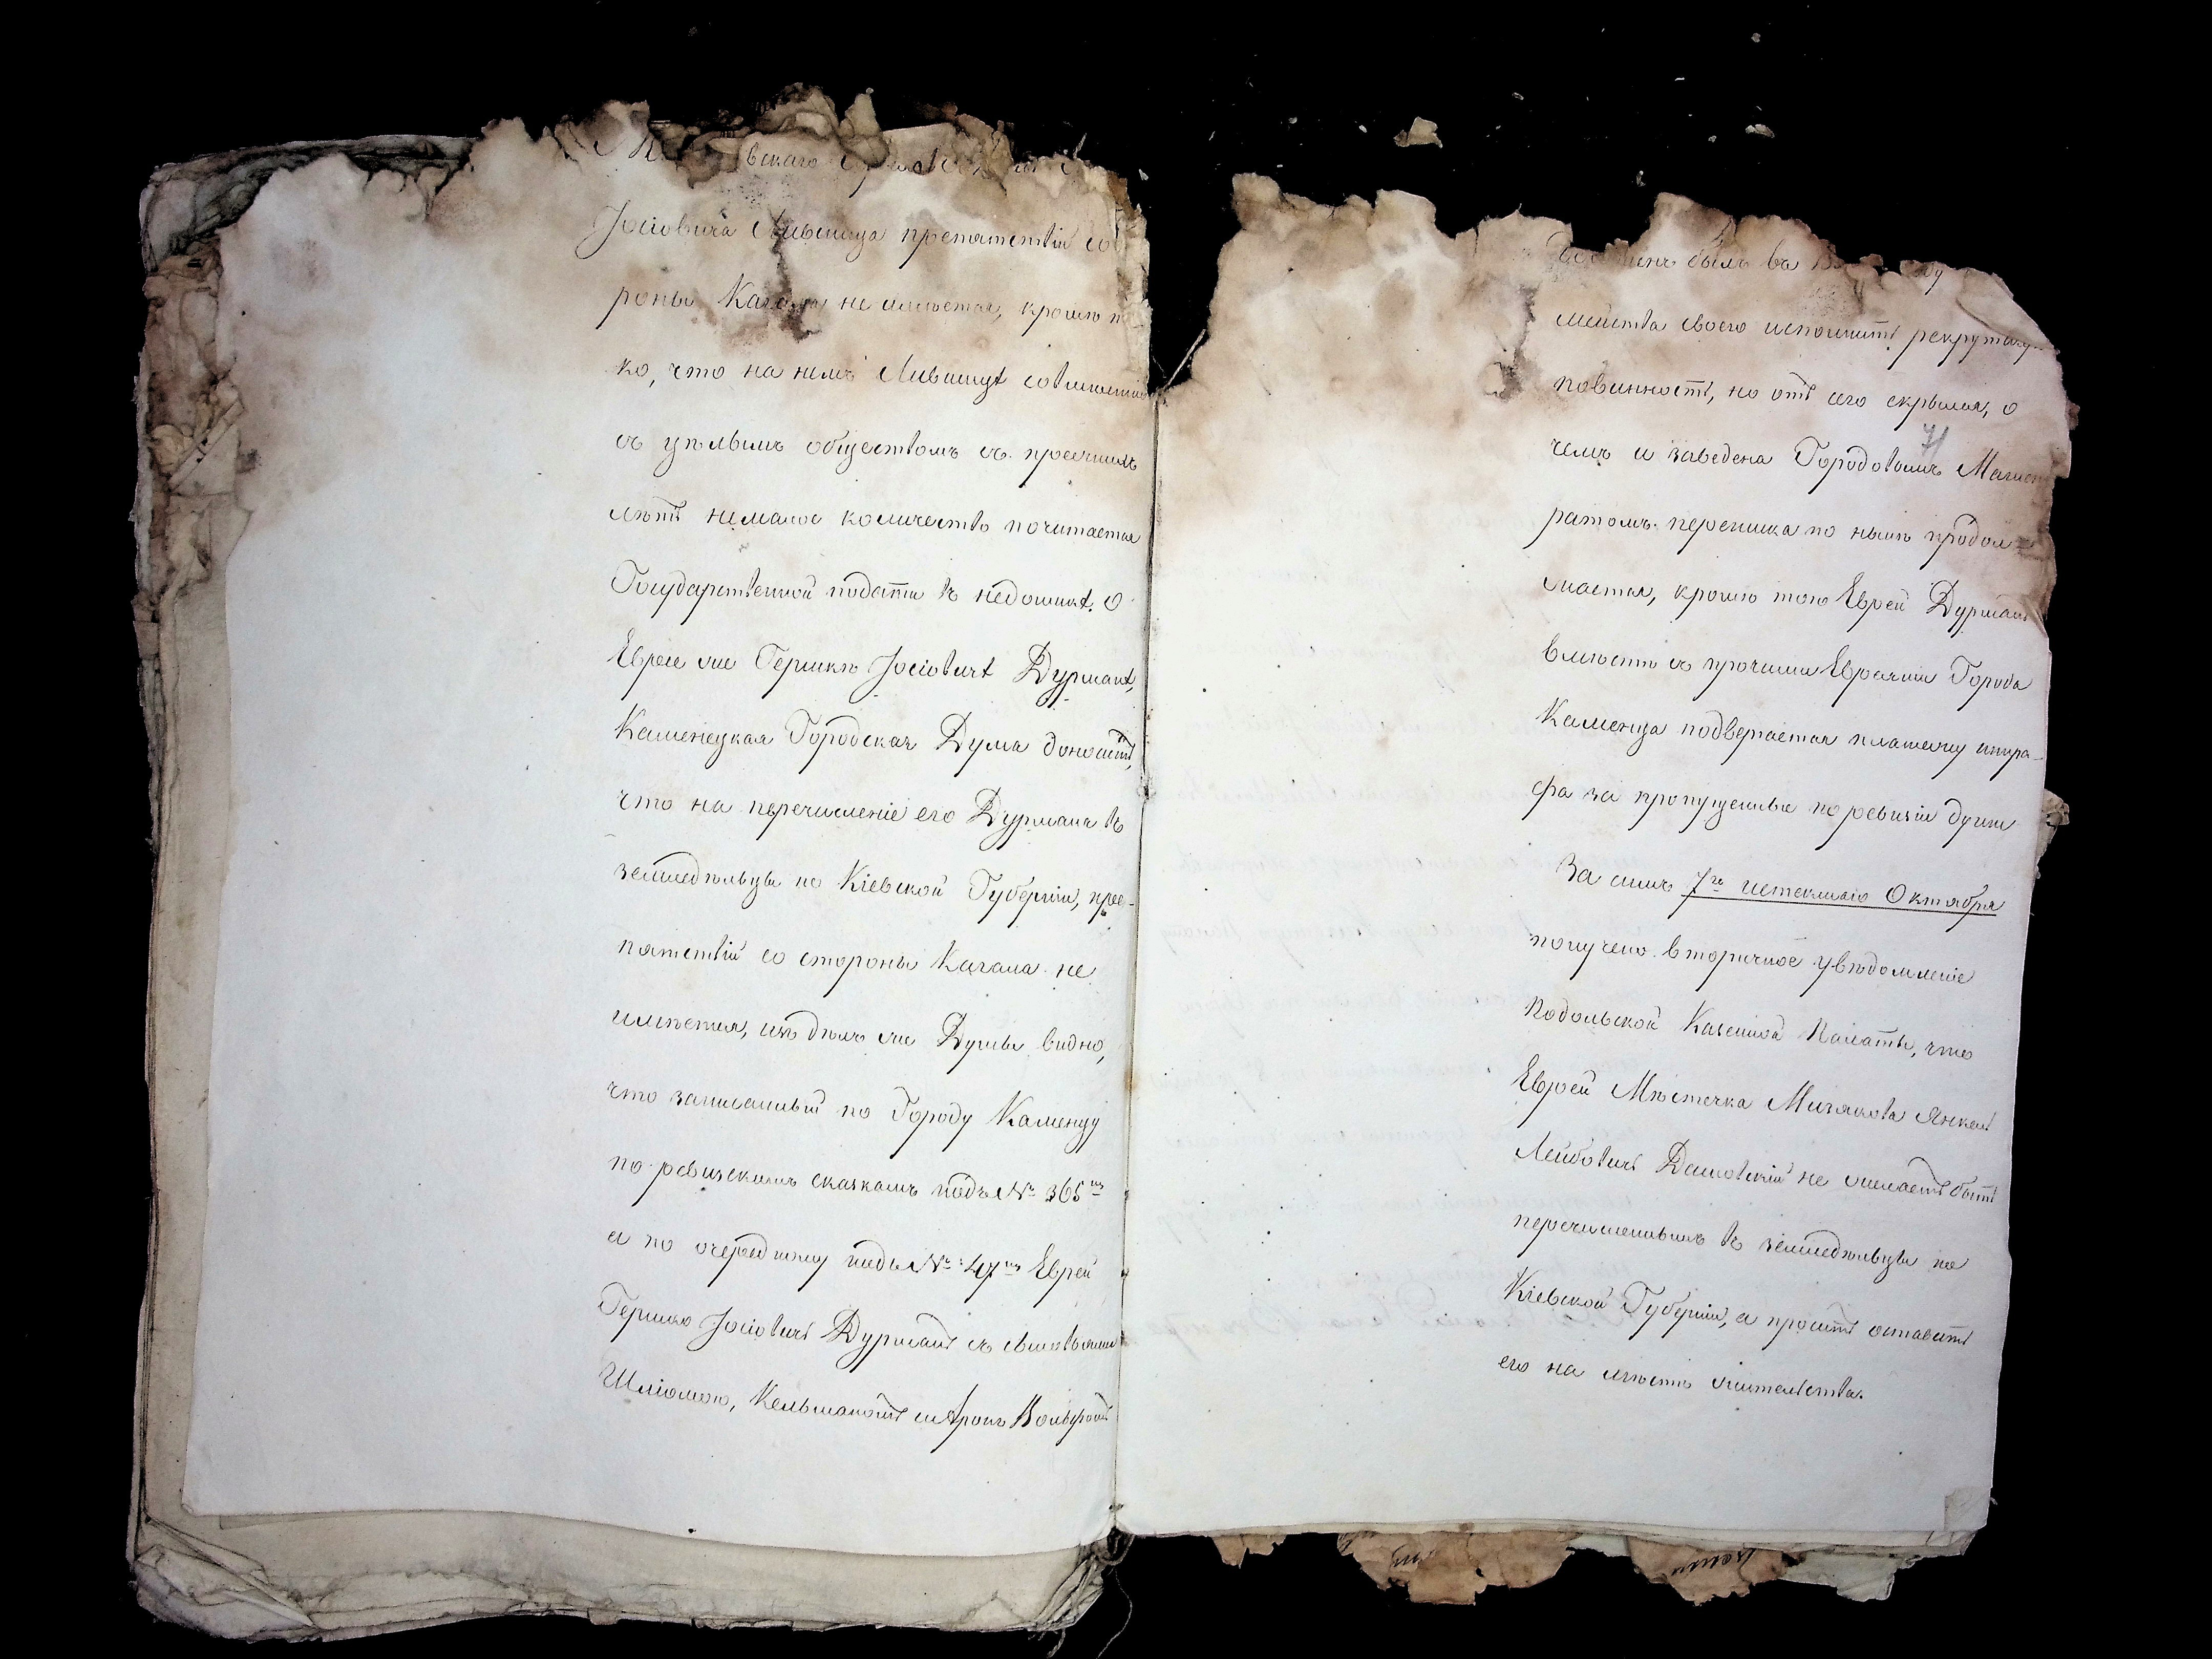 вскаго
Јосіовича Лившица препятствій со
роны Кагала не имѣется, кромѣ
ко, что на немъ Лившицѣ совмѣстно
съ цѣлымъ обществомъ съ прежнихъ
лѣтъ немалое количество почитается
Государственной подати въ недоимкѣ. О
Евреѣ же Гершкѣ Јосіовичѣ Дурманѣ,
Каменецкая Городская Дума доноситъ,
что на перечисленіе его Дурмана въ
земледѣльцы по Кіевской Губерніи, пре-
пятствій со стороны Кагала не
имѣется, изъ дѣлъ же Думы видно,
что записанный по Городу Каменцу
по ревизскимъ сказкамъ подъ № 365мъ
а по очередному подъ №: 47мъ Еврей
Гершко Јосіовичъ Дурманъ съ сыновьями
Шліомою, Кельманомъ и Арономъ Вольфомъ
былъ въ
мейства своего исполнить рекрутскую
повинность, но отъ сего скрылся, о
71
чемъ и заведена Городовымъ Магист
ратомъ переписка по нынѣ продол
жается, кромѣ того Еврей Дурманъ
вмѣстѣ съ прочими Евреями Города
Каменца подвергается платежу штра-
фа за пропущенные по ревизіи души
За симъ 7го истекшаго Октября
получено вторичное увѣдомленіе
Подольской Казенной Палаты, что
Еврей Мѣстечка Мизякова Янкель
Лейбовичъ Дашевскій не желаетъ быть
перечисленнымъ въ земледѣльцы по
Кіевской Губерніи, а проситъ оставить
его на мѣстѣ жительства.